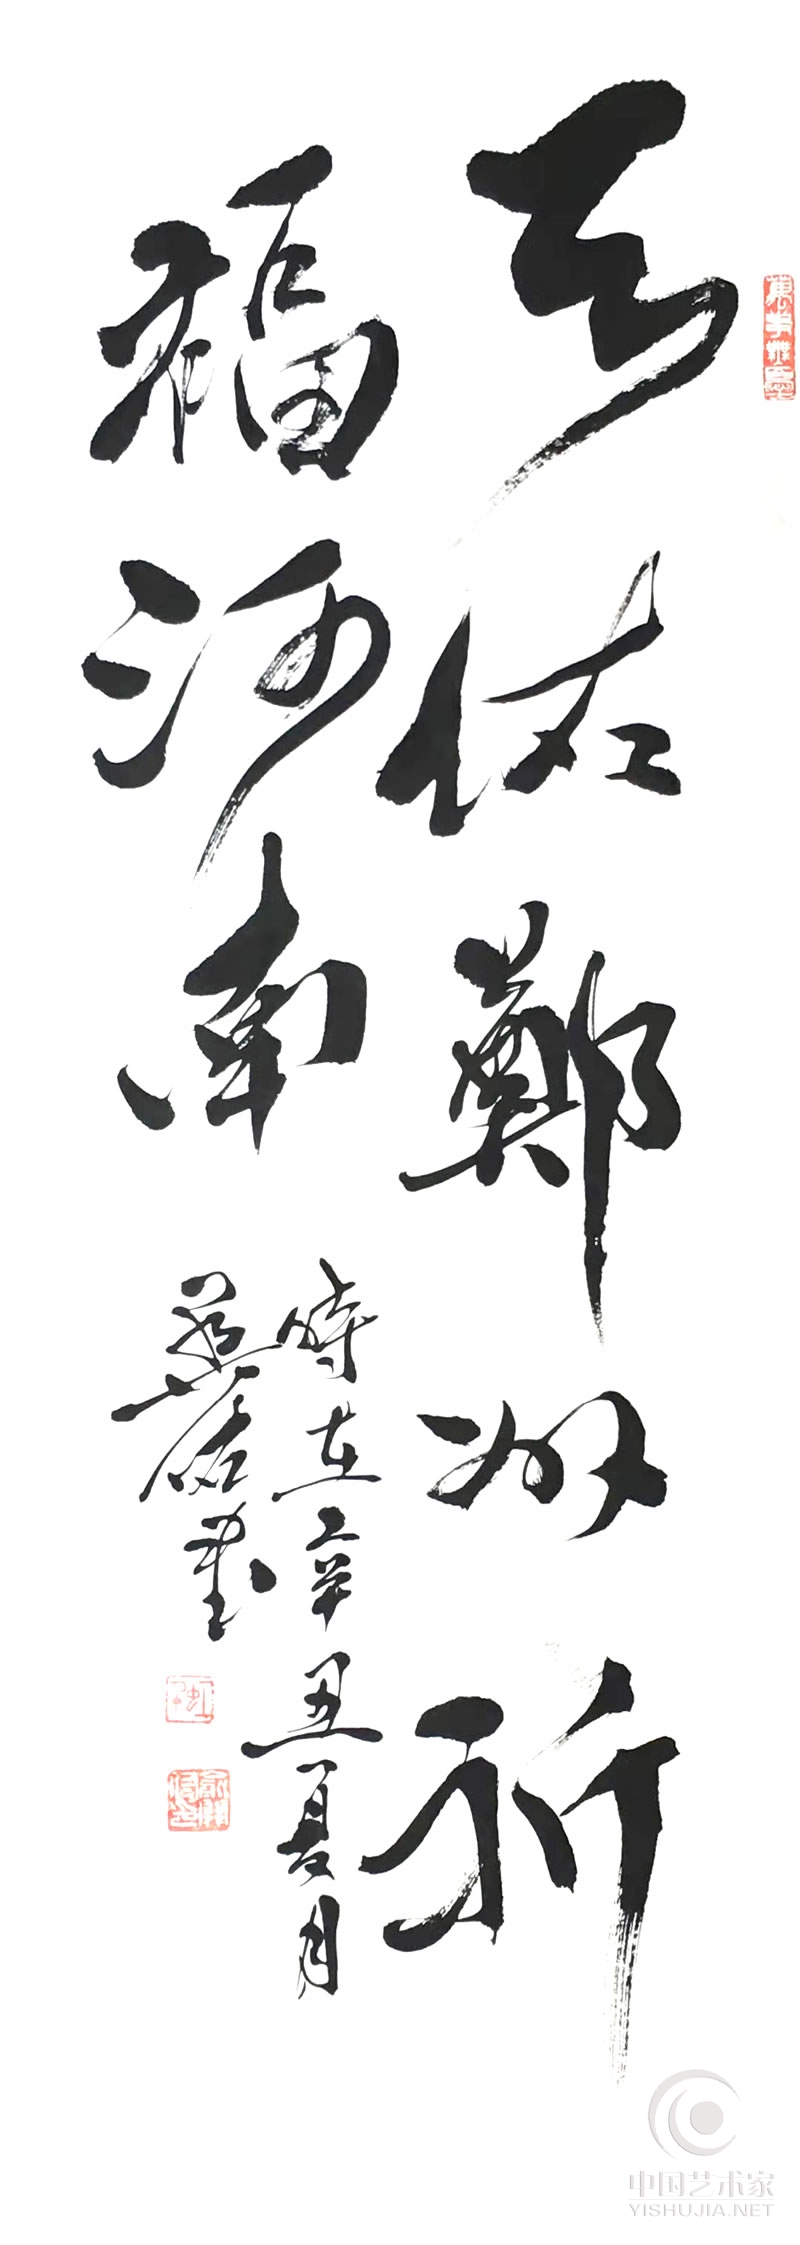 天佑鄭州祈
福河南
時在辛丑夏月
燕佑書
中国艺术家
YISHUJIA.NET